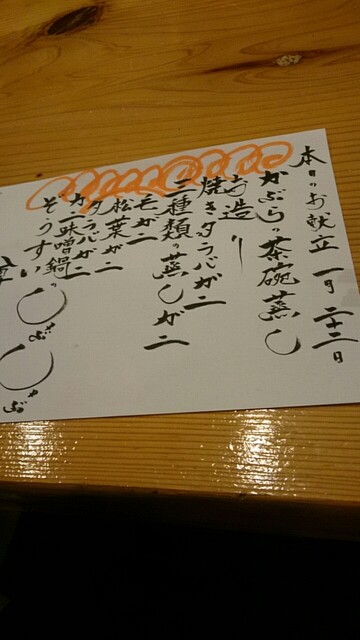 本日のお献立 一月二十二日
かぶらの茶碗蒸し
お造り
焼きタラバガニ
三種類の蒸しガニ
毛ガニ
松葉ガニ
タラバガニ
カニ味噌鍋の
ぞうすい
じゃぶ
じゃぶ